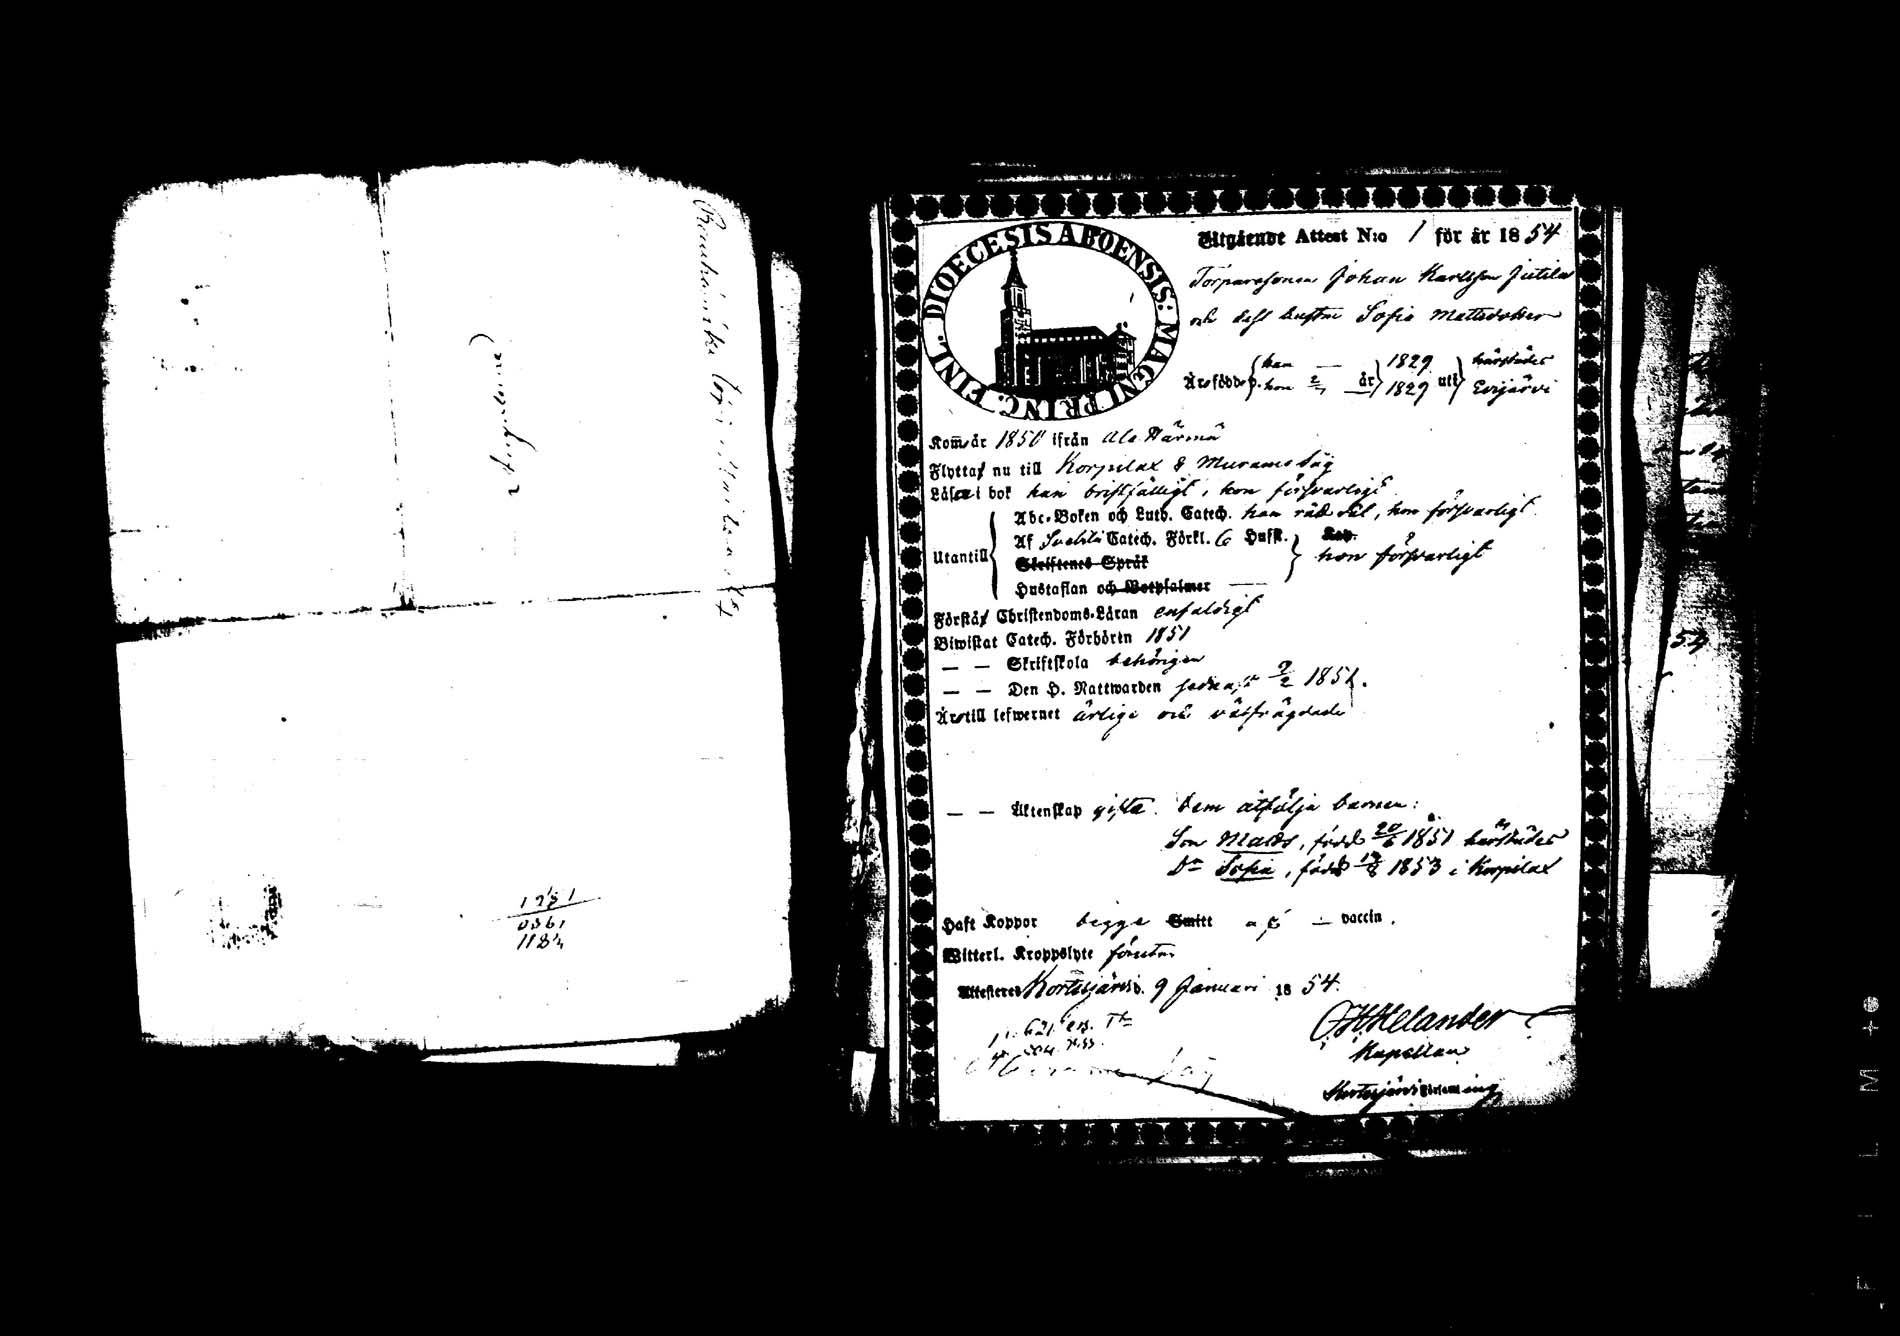 1781
0361
1184
DIOECESIS ABOENSIS: MAGNI PRINC. FINL.
Utgående Attest N:o 1 för år 1854
Torparesonen Johan Karlsson Jutila
och dess hustru Sofia Mattsdotter
Äro födde, han — år 1829 uti härstädes
hon 2/7 1829 Evijärvi
Kom år 1850 ifrån Ala Härmä
Flytta nu till Korpilax & Muramesby
Läsa i bok han bristfälligt, hon försvarligt
Utantill
Abc-Boken och Luth. Catech. han väl, hon försvarligt
Af Svebili Catech. Förkl. 6 Hufst. hon försvarligt
Skriftenes Språk
Hustaflan och Botpsalmer —
Förstå Christendoms-Läran enfaldigt
Biwistat Catech. Förhören 1851
— — Skriftskola behörigen
— — Den H. Nattwarden sednast 2/2 1851.
Äro till lefwernet ärlige och välfrägdade
— — Äktenskap gifta. Dem åtfölja barnen:
Son Matts, född 20/6 1851 härstädes
Dr Sofia, född 1853 i Korpilax
Haft Koppor begge Smitt af — vaccin.
Witterl. Kroppslyte förutan
Attesteras Kortesjärvi d. 9 Januari 1854.
Helander
Kapellan
Kortesjärvi
54
FILM